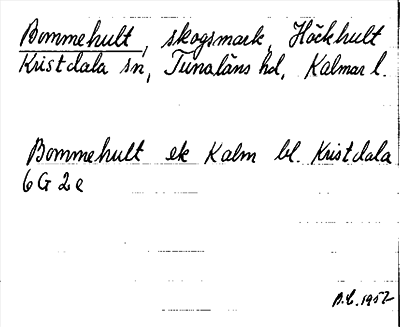 Bommehult, skogsmark, Höckhult
Kristdala sn, Tunaläns hd, Kalmar l.
Bommehult ek Kalm bl. Kristdala
6 G 2 e
B.E. 1957